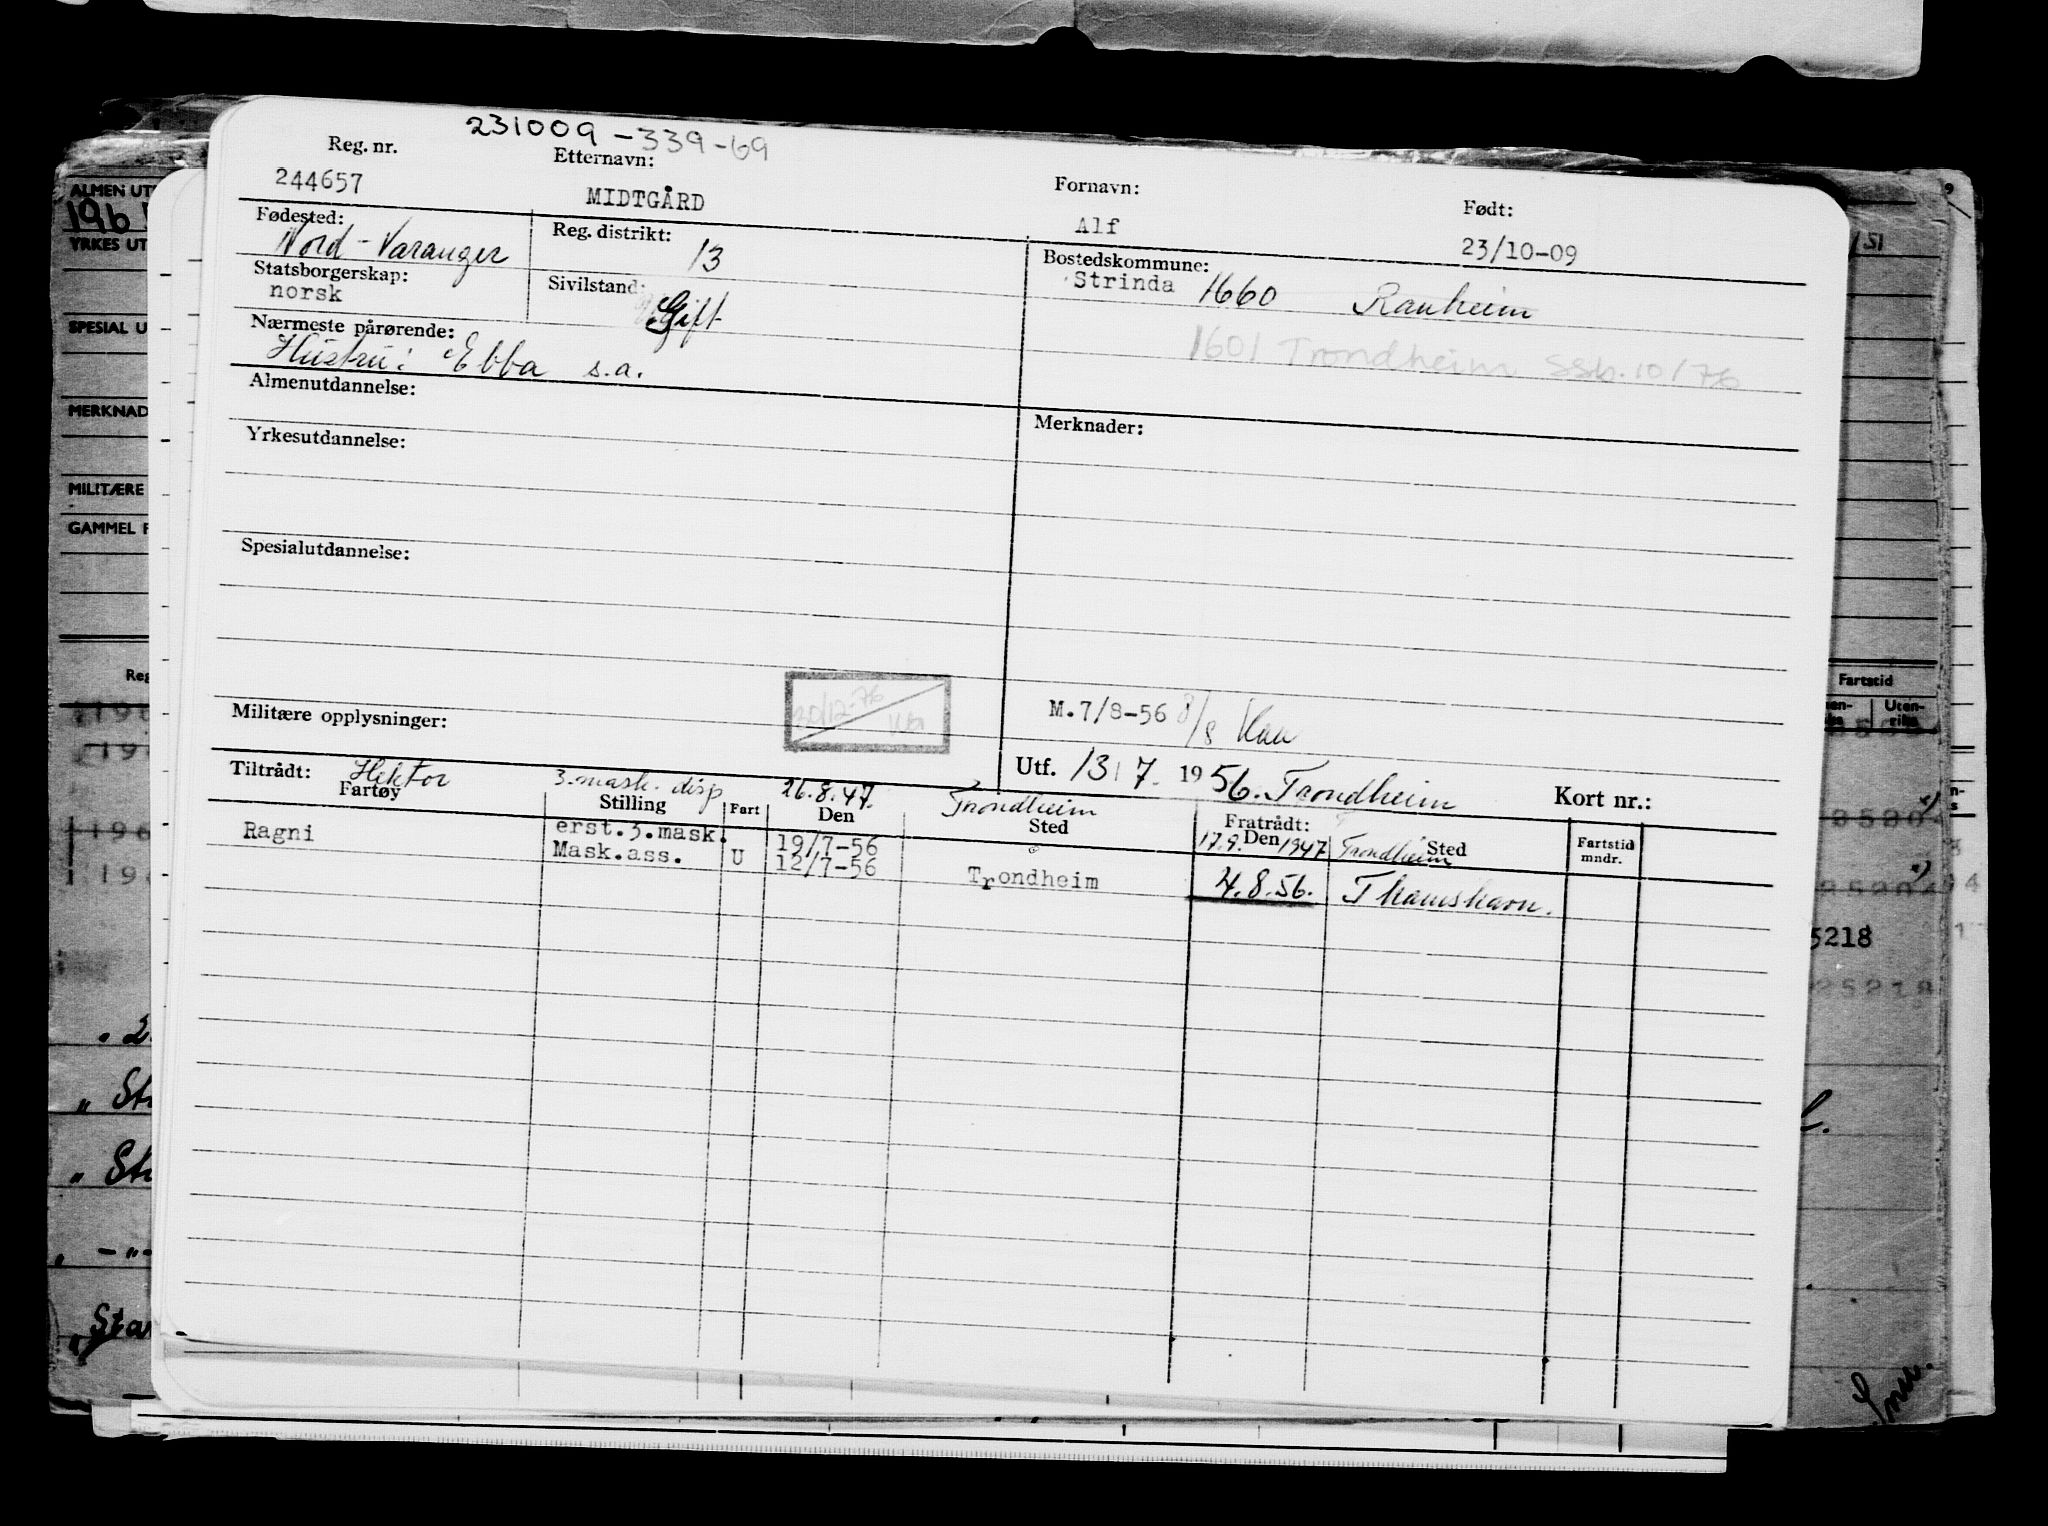 231009-339-69
Reg. nr. Etternavn: Fornavn: Født:
244657 MIDTGÅRD Alf 23/10-09
Fødested: Reg. distrikt: Bostedskommune:
Nord-Varanger 13 Strinda 1660 Ranheim
Statsborgerskap: Sivilstand:
norsk Gift
1601 Trondheim SSb. 10/76
Nærmeste pårørende:
Hustru: Ebba s.a.
Almenutdannelse: Merknader:
Yrkesutdannelse:
Spesialutdannelse:
20/12-76
Militære opplysninger: M.7/8-56 8/8
Utf. 13/7. 1956. Trondheim Kort nr.:
Tiltrådt: Hektor 3. mask. disp 26.8.47. Trondheim Fratrådt: 17.9. 1947 Trondheim
Fartøy Stilling Fart Den Sted Den Sted Fartstid mndr.
Ragni erst.3.mask. 19/7-56
Mask.ass. U 12/7-56 Trondheim 4.8.56. Thamshavn.
ALMEN UT
196
YRKES UT
SPESIAL U
MERKNAD
MILITÆRE
GAMMEL F
Reg
Fartstid
Uten-
riks
5218